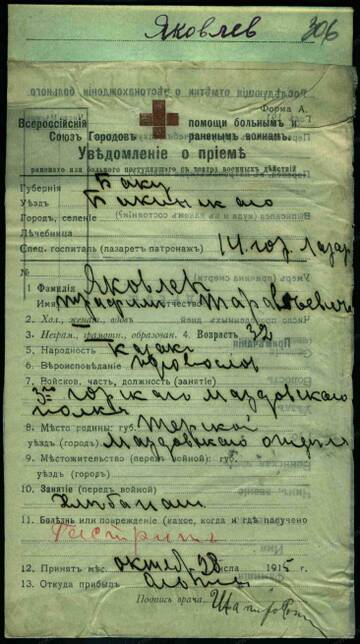 Яковлев 306
Форма А.
Всероссійскій Союз Городов
помощи больным и раненым воинам.
Увѣдомленіе о пріемѣ
раненаго или больного поступившаго съ театра военных дѣйствій
Губернія Баку
Уѣзд Бакинскаго
Город, селеніе
Лѣчебница
Спец. госпиталь (лазарет патронаж) 14 гор. Лазар
№
1 Фамилія Яковлев
Имя Трофим отчество
2. Хол., женат., вдов
3. Неграм., грамотн., образован. 4. Возраст 32
5. Народность казак
6. Вѣроисповѣданіе православ
7. Войсков. часть, должность (занятіе)
3го горскаго моздовскаго
полка
8. Мѣсто родины: губ. Терской
уѣзд (город) Маздовскаго отдѣла
9. Мѣстожительство (перед войной) губ.
уѣзд (город)
10. Занятіе (перед войной)
Хлѣбопаш
11. Болѣзнь или поврежденіе (какое, когда и гдѣ получено
Гастритъ
12. Принят мѣс. октяб. 28 числа 1915 г.
13. Откуда прибыл
Подпись врача